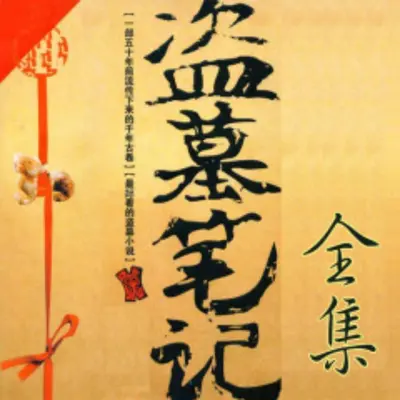 盗墓笔记
全集
[一部五十年前流传下来的千年古卷][最好看的盗墓小说]